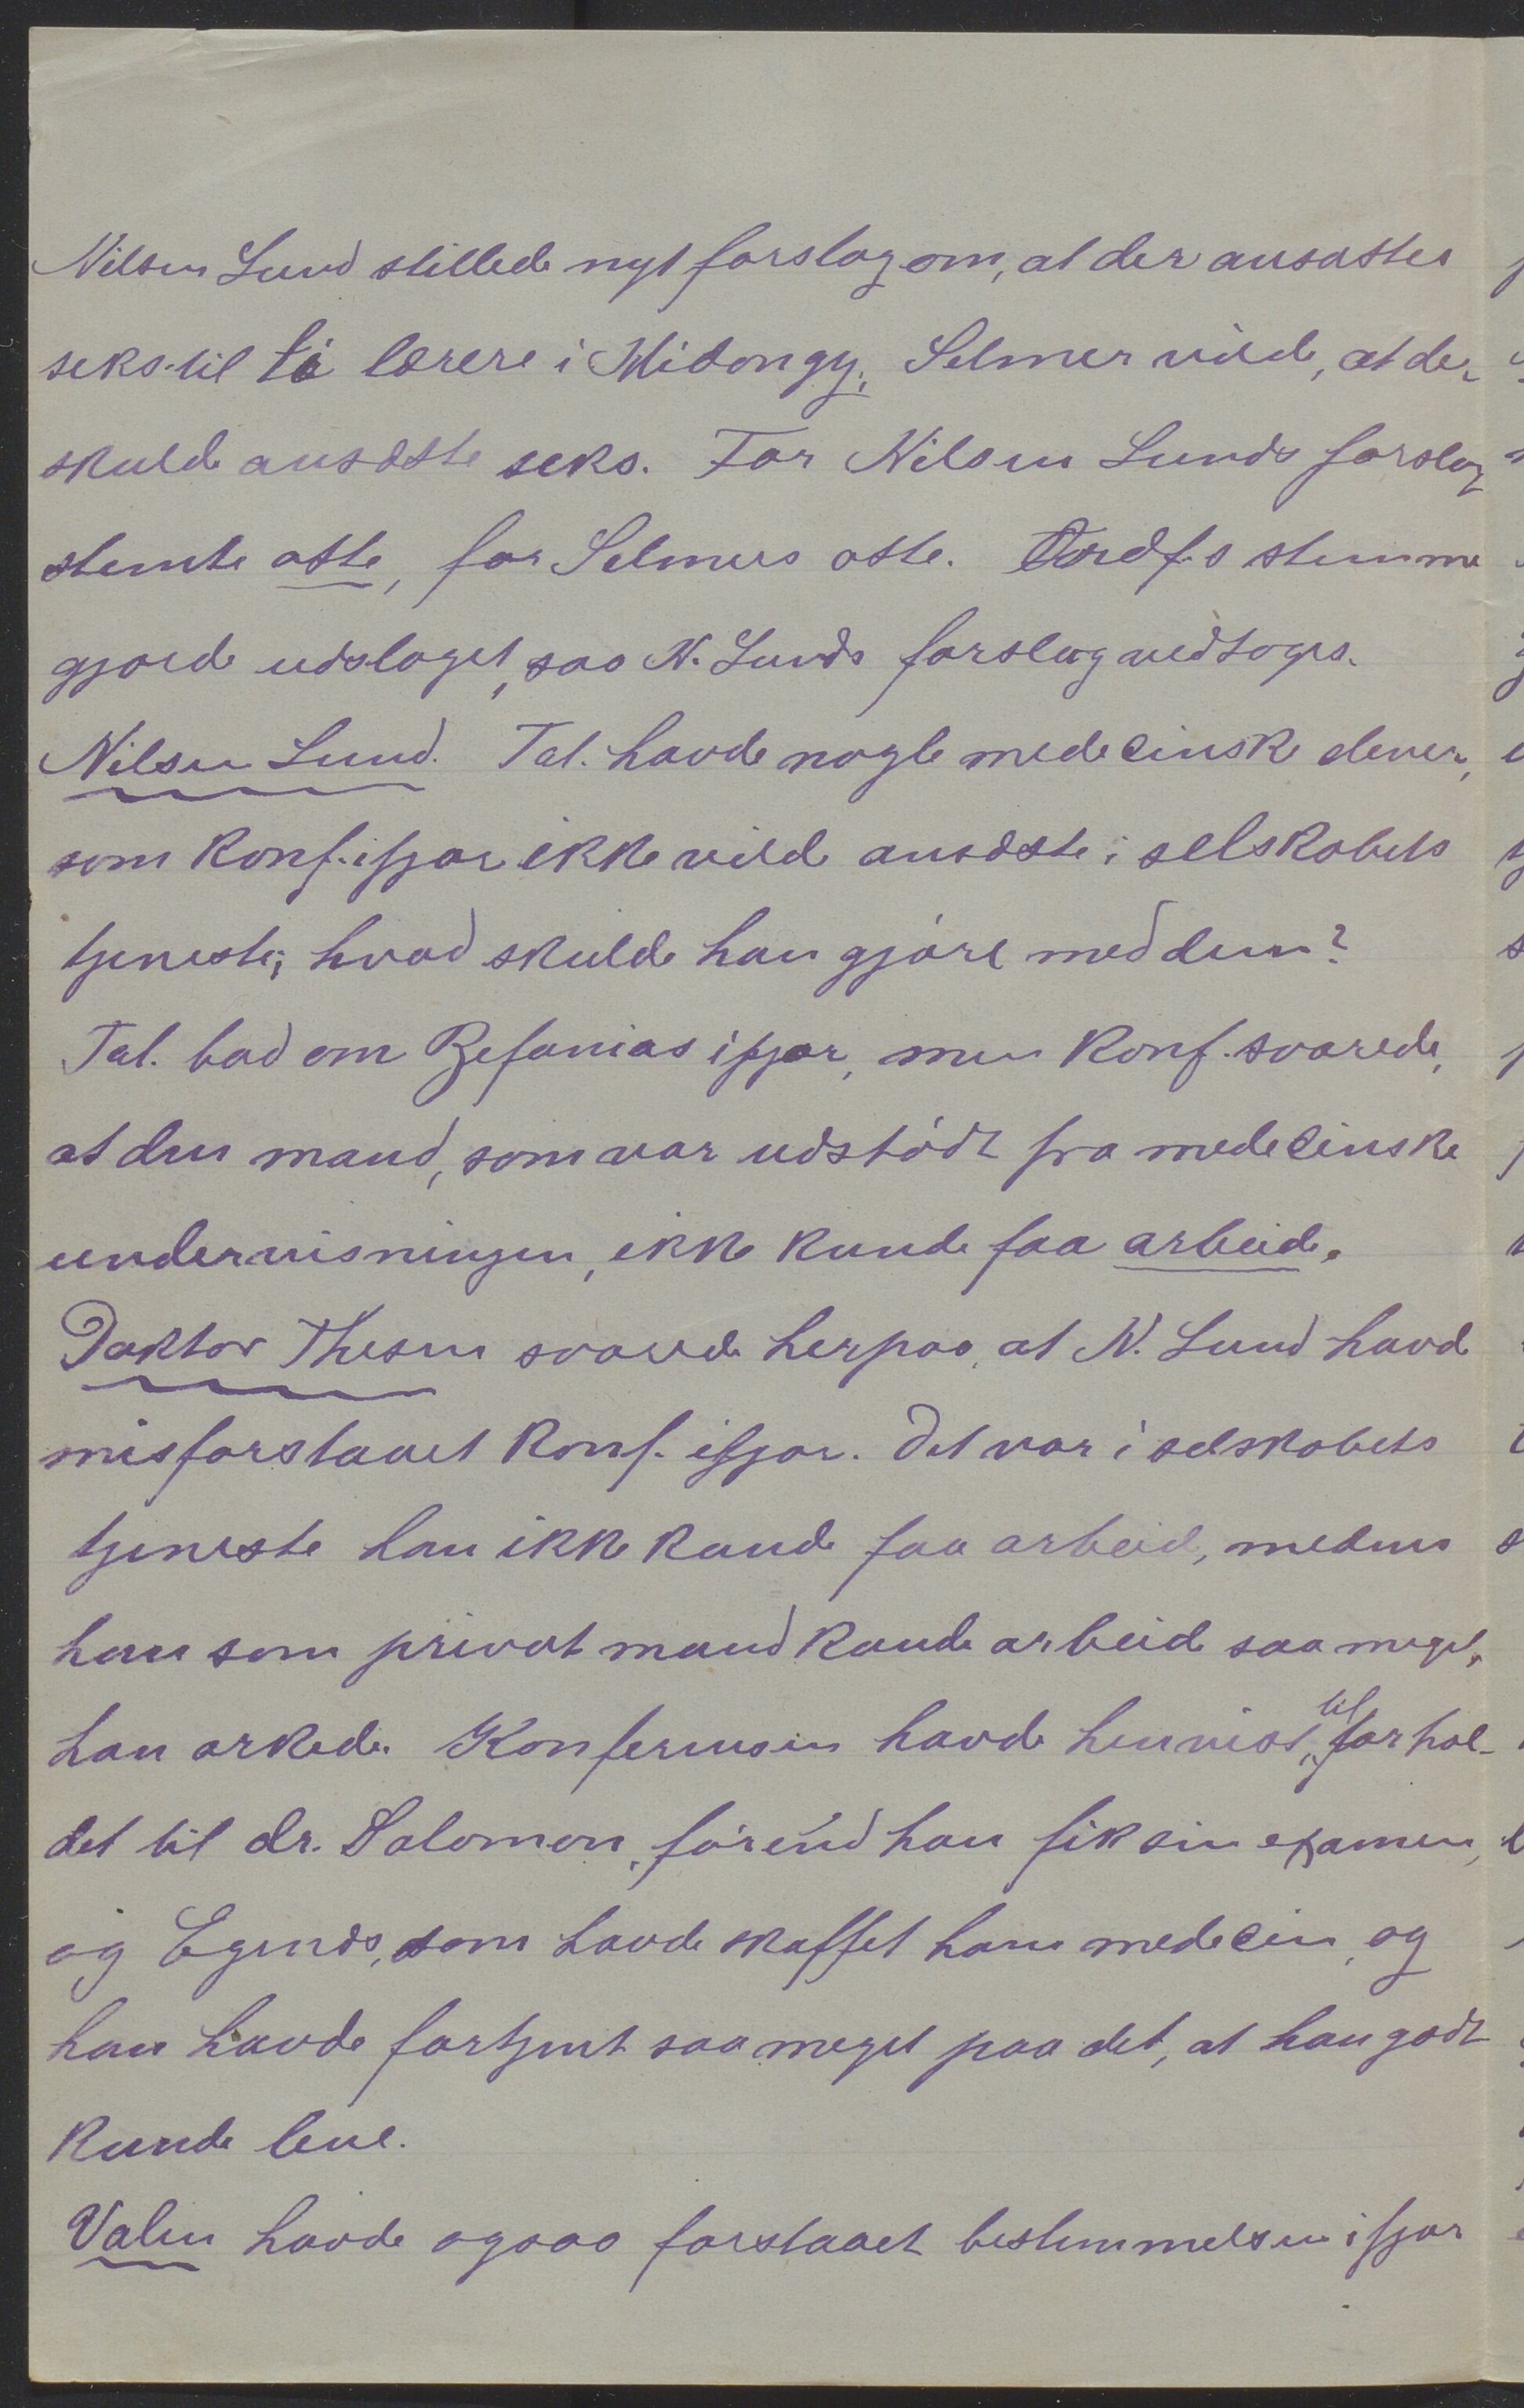 Nilsen Lund stillede nyt forslag om, at der ansattes
seks til ti lærere i Midongy. Selmer vilde, at der
skulde ansætte seks. For Nilsen Lunds forslag
stemte otte, for Selmers otte. Ordf.s stemme
gjorde udslaget, saa N. Lunds forslag vedtoges.
Nilsen Lund. Tal. havde nogle medecinske elever,
som Konf. ifjor ikke vilde ansætte i selskabets
tjeneste; hvad skulde han gjøre med dem?
Tal. bad om Zefanias ifjor, men Konf. svarede,
at den mand, som var udstødt fra medecinske
undervisningen, ikke kunde faa arbeide.
Doktor Thesen svarede herpaa, at N. Lund havde
misforstaaet Konf. ifjor. Det var i selskabets
tjeneste han ikke kunde faa arbeid, medens
han som privat mand kunde arbeide saa meget,
han orkede. Konferensen havde henvist til forhol-
det til dr. Salomon, førend han fik sin examen,
og Egenes, som havde skaffet ham medecin, og
han havde fortjent saa meget paa det, at han godt
kunde leve.
Valen havde ogsaa forstaaet bestemmelsen ifjor